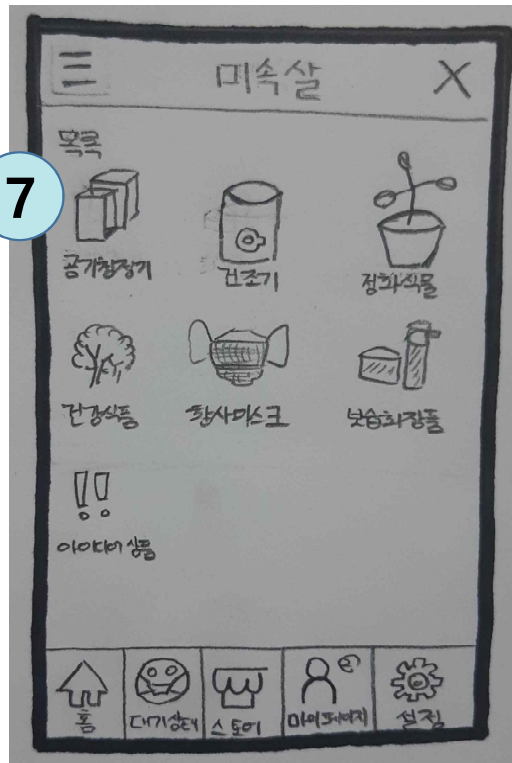 미속살 X
목록
7
공기청정기 건조기 정화식물
건강식품 황사마스크 보습화장품
!!
아이디어 상품
홈 대기상태 스토어 마이페이지 설정